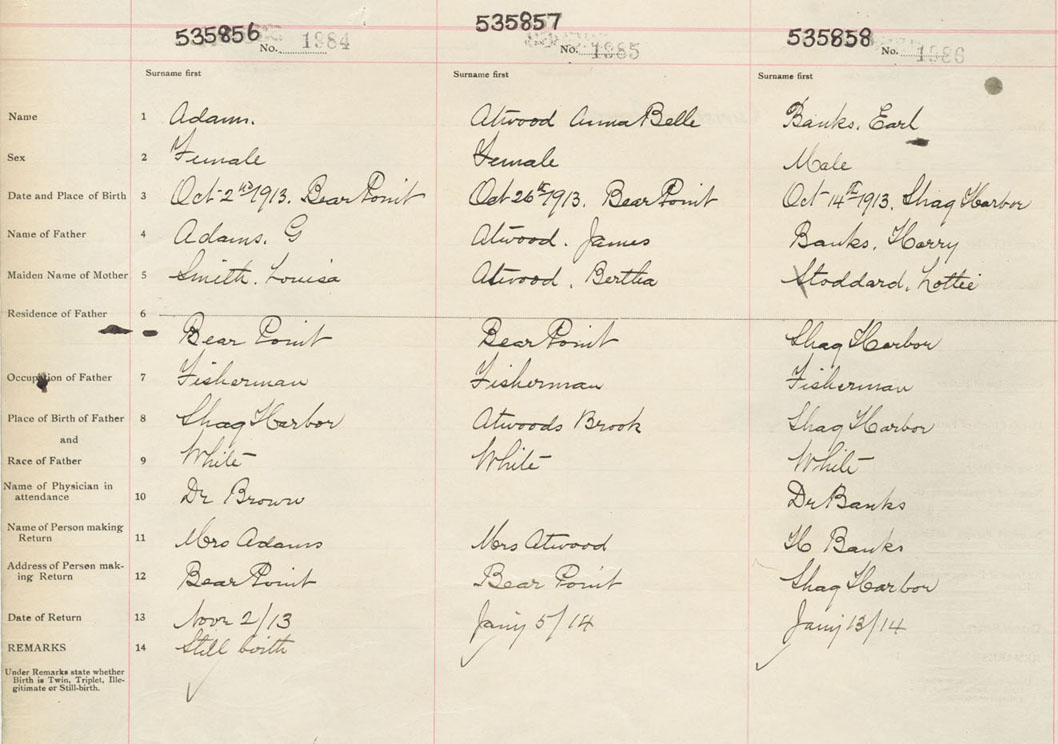 535856 535857 535858
No. 1984 No. 1985 No. 1986
Surname first Surname first Surname first
Name 1 Adams. Atwood Anna Belle Banks, Earl
Sex 2 Female Female Male
Date and Place of Birth 3 Oct 2nd 1913. Bear Point Oct 26th 1913. Bear Point Oct 14th 1913. Shag Harbor
Name of Father 4 Adams. G Atwood. James Banks, Harry
Maiden Name of Mother 5 Smith. Louisa Atwood, Bertha Stoddard, Lottie
Residence of Father 6
Bear Point Bear Point Shag Harbor
Occupation of Father 7 Fisherman Fisherman Fisherman
Place of Birth of Father 8 Shag Harbor Atwoods Brook Shag Harbor
and
Race of Father 9 White White White
Name of Physician in
attendance 10 Dr Brown Dr Banks
Name of Person making
Return 11 Mrs Adams Mrs Atwood H Banks
Address of Person mak-
ing Return 12 Bear Point Bear Point Shag Harbor
Date of Return 13 Novr 2/13 Jany 5/14 Jany 13/14
REMARKS 14 Still birth
Under Remarks state whether
Birth is Twin, Triplet, Ille-
gitimate or Still-birth.